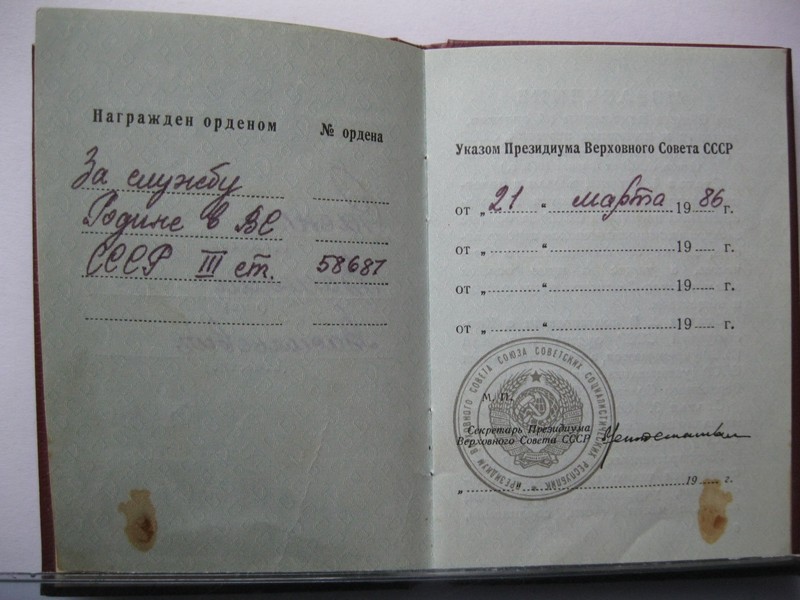 Награжден орденом
№ ордена
За службу
Родине в ВС
СССР III ст. 58687
Указом Президиума Верховного Совета СССР
от „ 21 “ марта 1986 г.
от „ “ 19 г.
от „ “ 19 г.
от „ “ 19 г.
ПРЕЗИДИУМ ВЕРХОВНОГО СОВЕТА СОЮЗА СОВЕТСКИХ СОЦИАЛИСТИЧЕСКИХ РЕСПУБЛИК
М. П.
Секретарь Президиума
Верховного Совета СССР
„ “ 19 г.